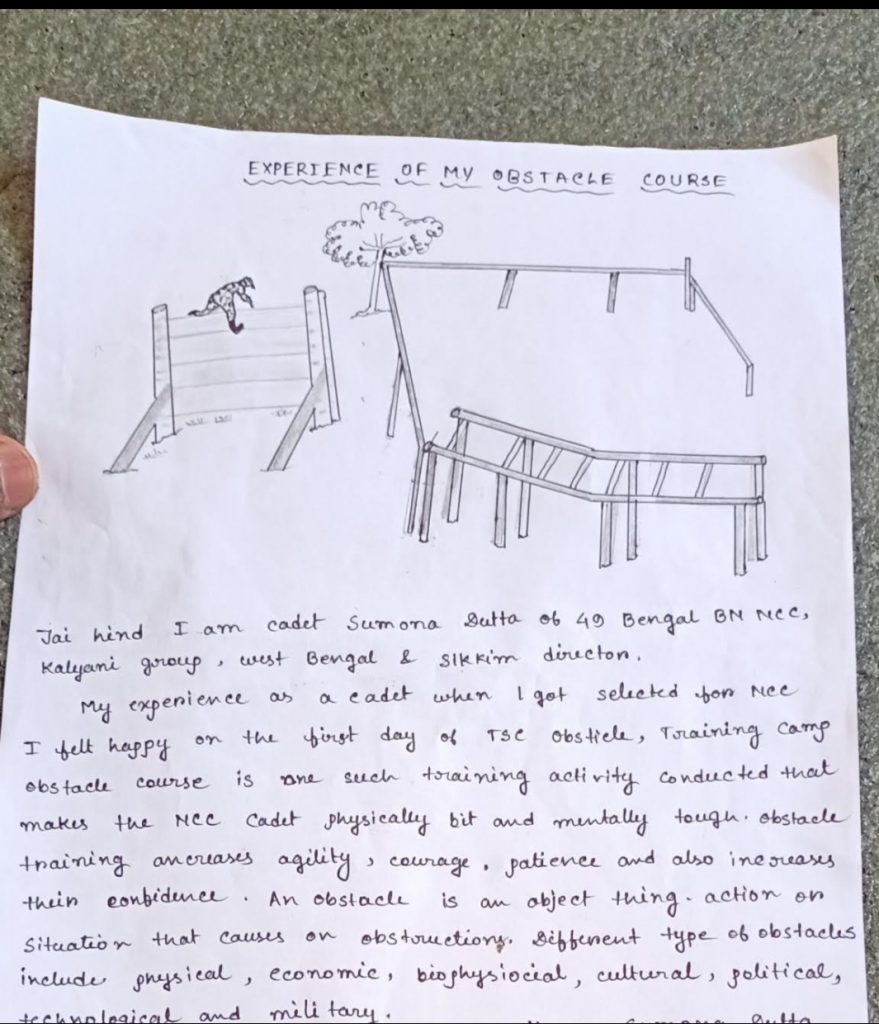 EXPERIENCE OF MY OBSTACLE COURSE
Jai hind I am cadet Sumona Dutta of 49 Bengal BN NCC,
Kalyani group, west Bengal & SIKKim directon.
My experience as a cadet when I got selected for NCC
I felt happy on the first day of TSC obsticle, Training Camp
obstacle course is one such training activity conducted that
makes the NCC Cadet physically bit and mentally tough. obstacle
training ancreases agility, courage, patience and also increases
their confidence. An obstacle is an object thing. action or
Situation that causes on obstructiony. Different type of obstacles
include physical, economic, biophysiocial, cultural, political,
technological and military.
Sumona Dutta